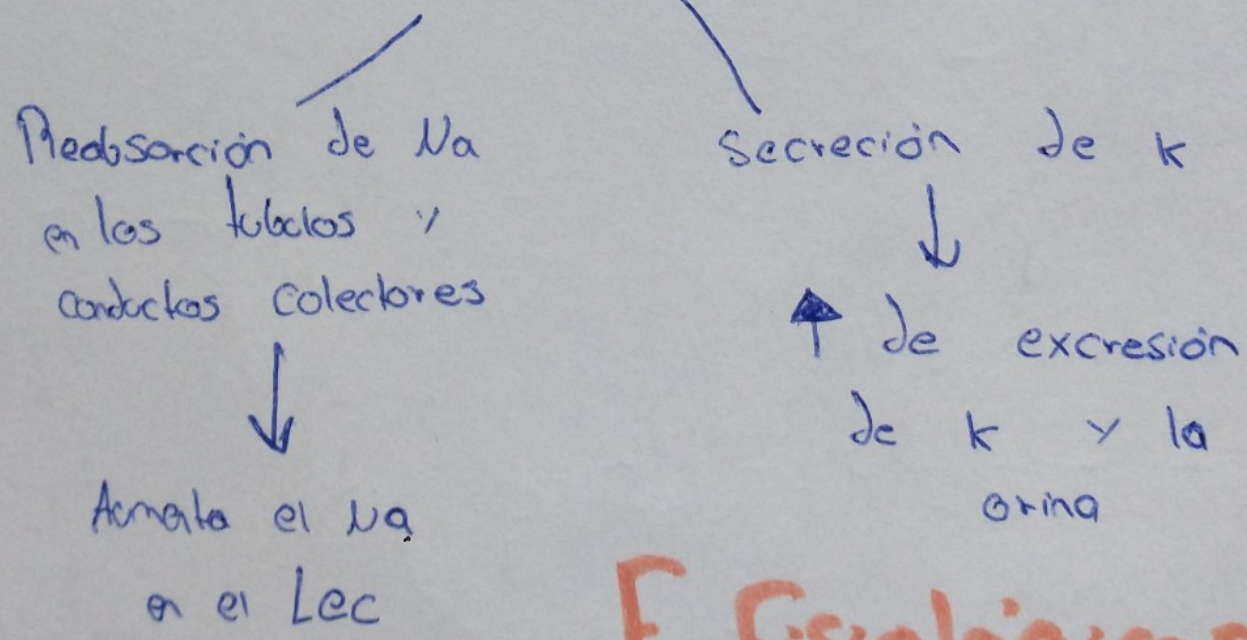 Reabsorción de Na
en los tubulos y
conductos colectores
Aumenta el Na
en el Lec
Secreción de K
de excresión
de K y la
orina